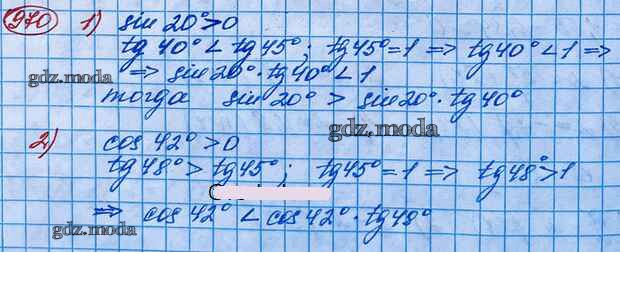 970 1) sin 20° > 0
tg 40° < tg 45° ; tg 45° = 1 => tg 40° < 1 =>
=> sin 20° · tg 40° < 1
gdz.moda
тогда sin 20° > sin 20° · tg 40°
gdz.moda
2) cos 42° > 0
tg 48° > tg 45° ; tg 45° = 1 => tg 48° > 1
=> cos 42° < cos 42° · tg 48°
gdz.moda